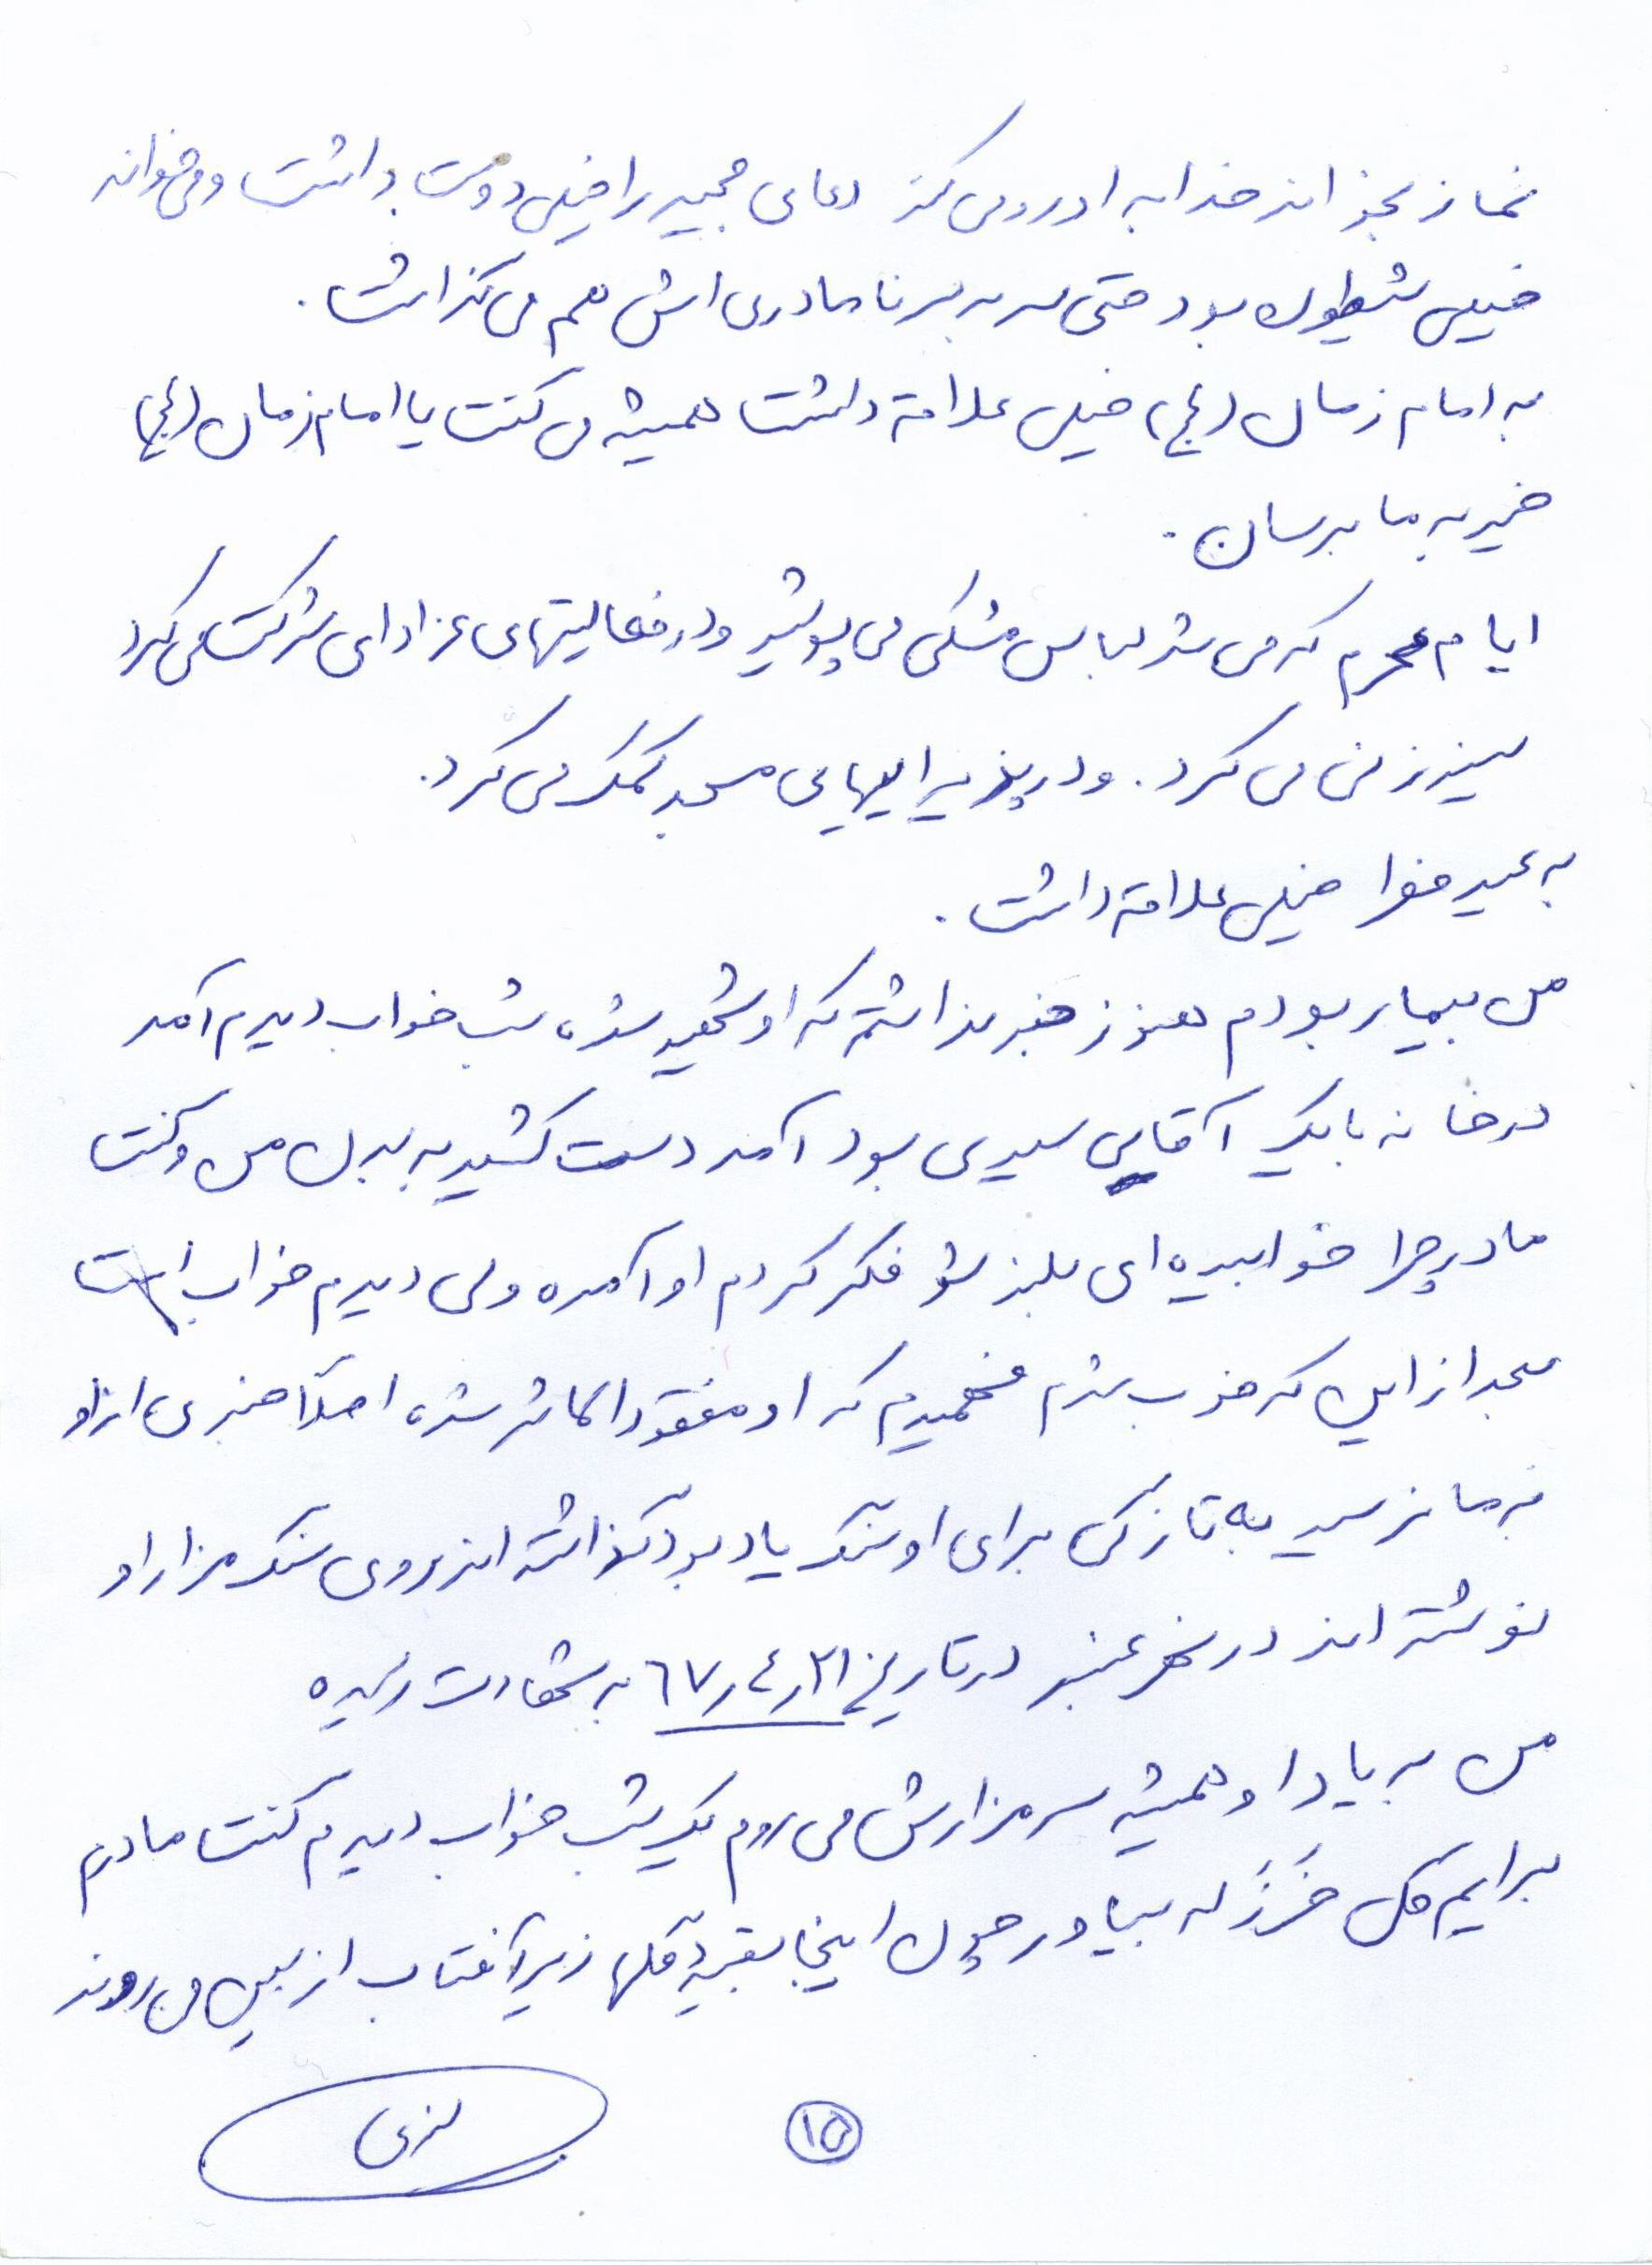 نماز بخواند خدا به او رو می کند دعای مجیر را خیلی دوست داشت و می خواند
خیلی شیطون بود حتی سر به سر نامادری اش هم می گذاشت .
به امام زمان (عج) خیلی علاقه داشت همیشه می گفت یا امام زمان (عج)
خیر به ما برسان .
ایام محرم که می شد لباس مشکی می پوشید و در فعالیتهای عزاداری شرکت می کرد
سینه زنی می کرد . و در پذیرایهایی مسجد کمک می کرد .
به عید فطر خیلی علاقه داشت .
من بیمار بودم هنوز خبر نداشتم که او شهید شده ، شب خواب دیدم آمد
در خانه با یک آقایی سیدی بود آمد دست کشید به بدن من و گفت
مادر چرا خوابیده ای بلند شو فکر کردم او آمده ولی دیدم خواب است
بعد از این که خوب شدم فهمیدم که او مفقودالاثر شده اصلاً خبری از او
به ما نرسید به تازگی برای او سنگ یادبود گذاشته اند روی سنگ مزار او
نوشته اند در نهر عنبر در تاریخ ٢١ر٤ر٦٧ به شهادت رسیده
من به یاد او همیشه سر مزارش می روم یک شب خواب دیدم گفت مادرم
برایم گل خَرزَله بیاور چون اینجا بقیه گلها زیر آفتاب از بین می روند
١٥